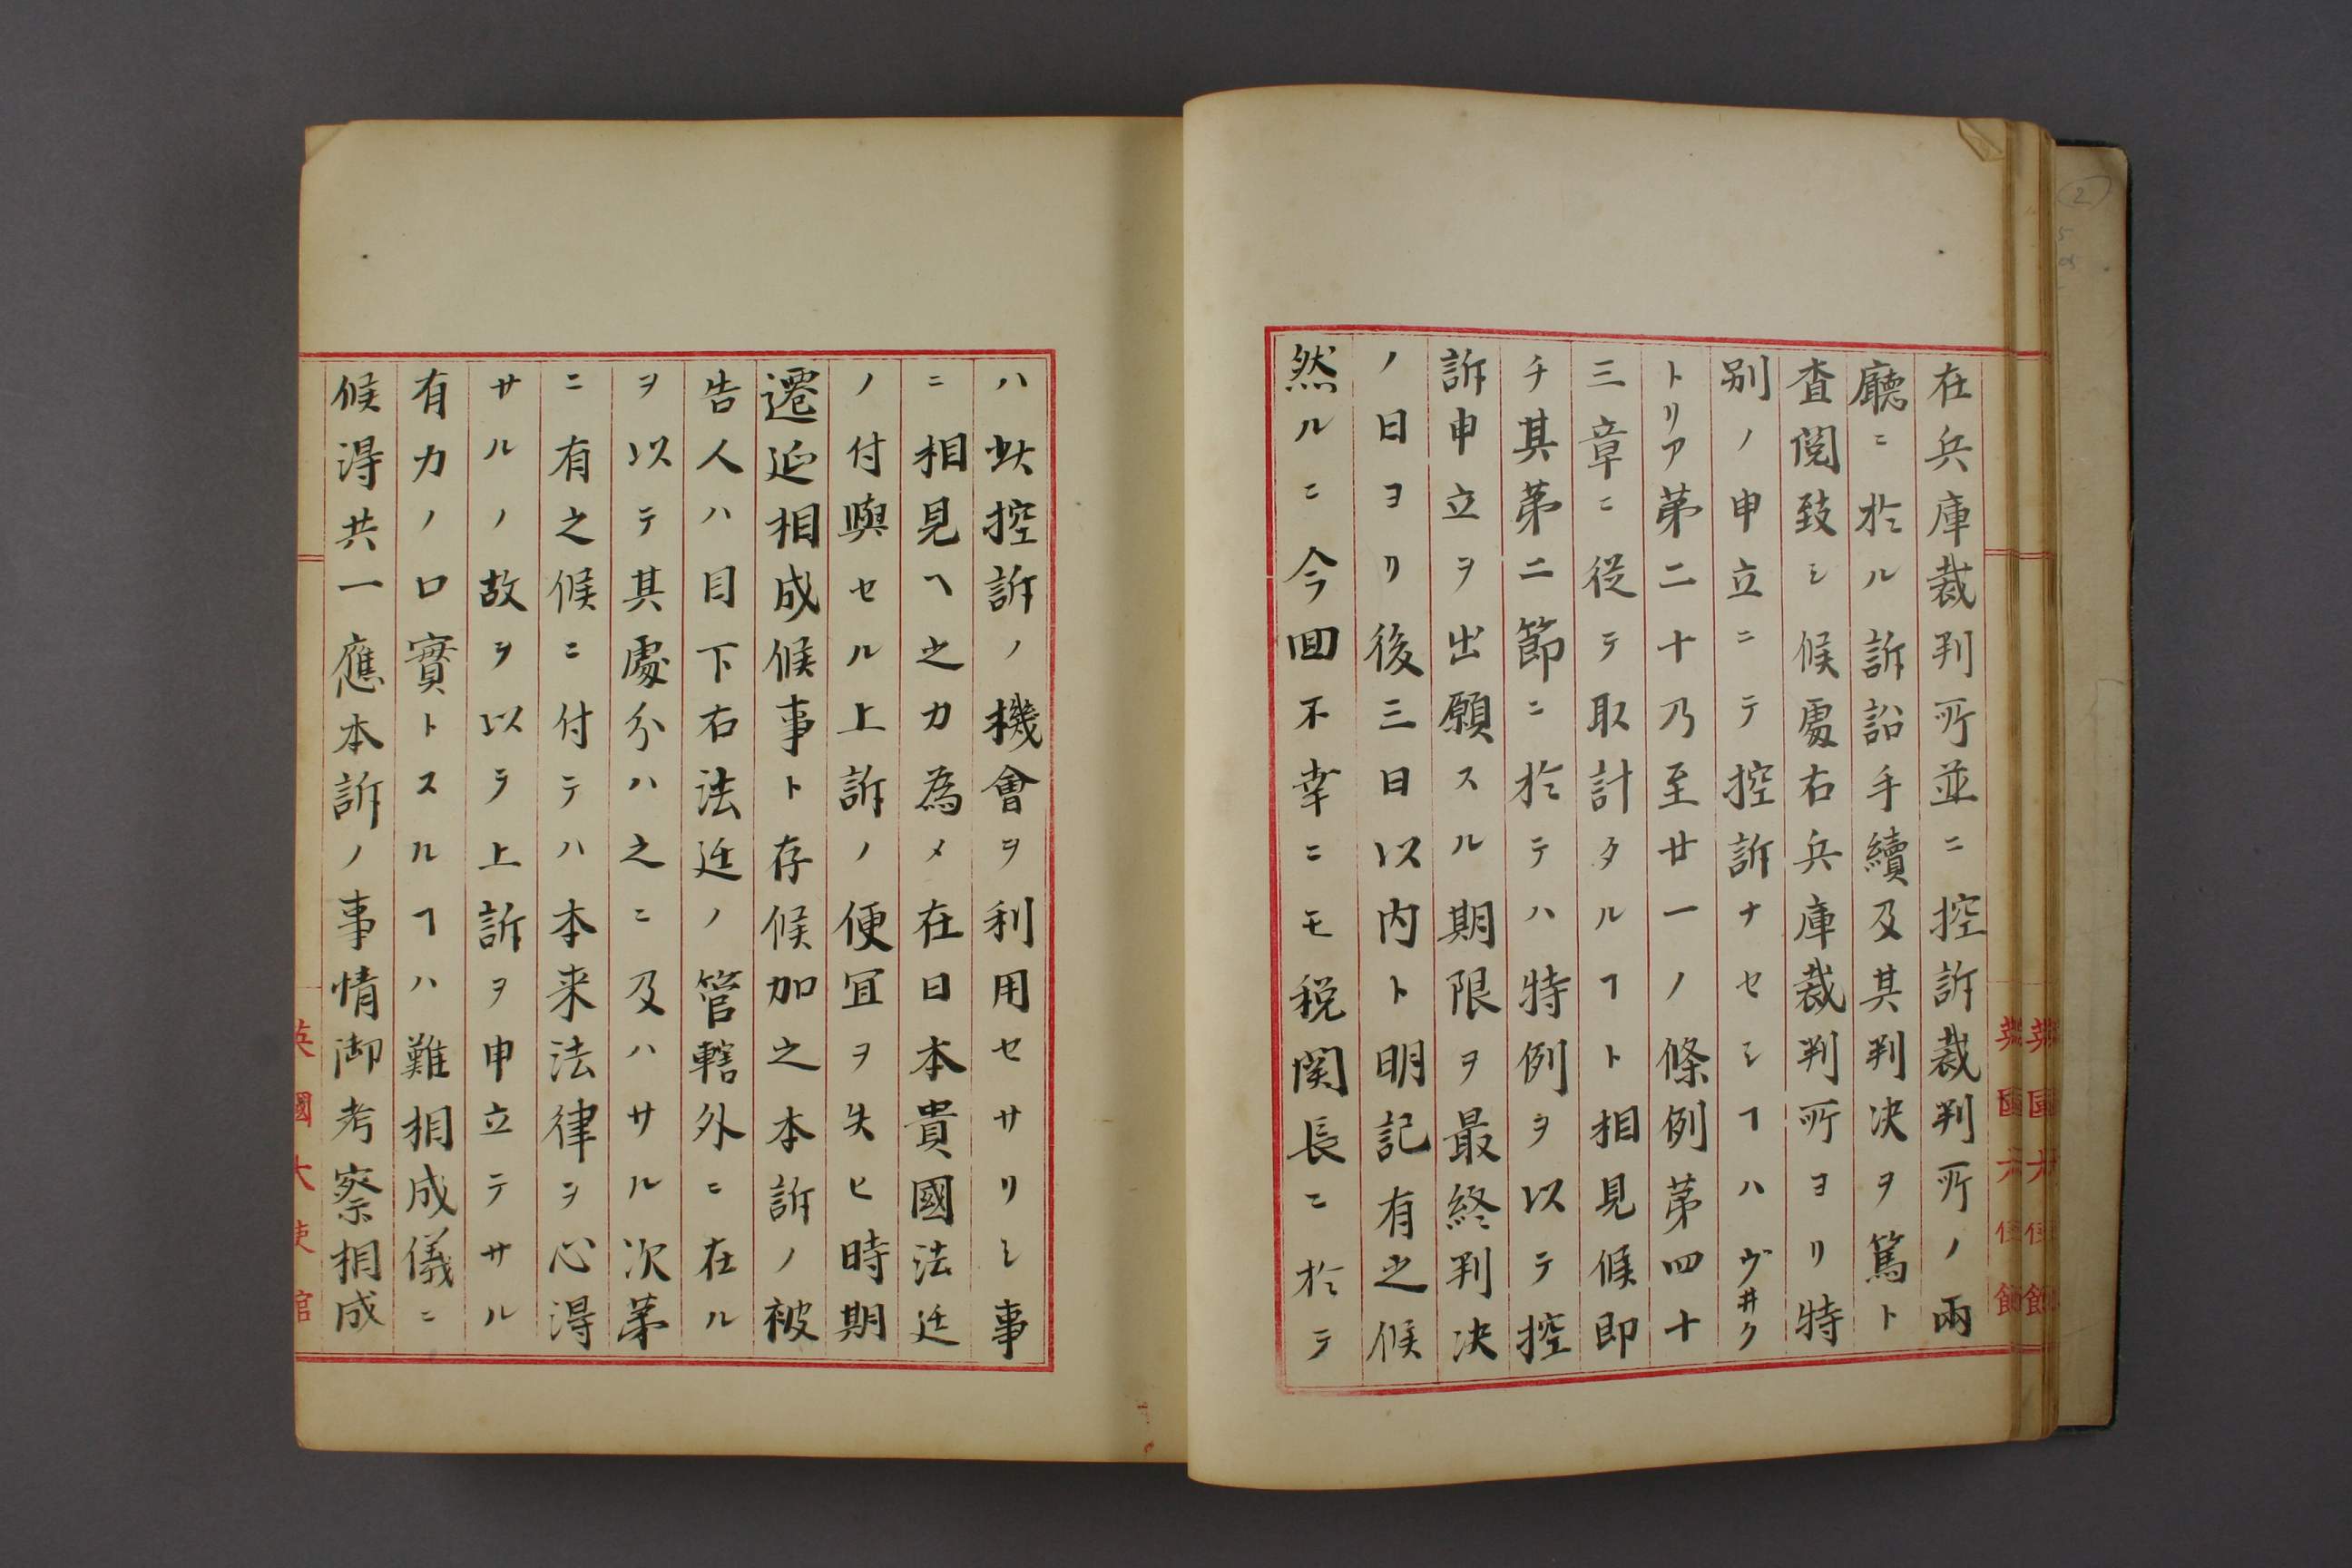 在兵庫裁判所並ニ控訴裁判所ノ兩
廳ニ於ル訴訟手續及其判决ヲ篤ト
査閲致シ候處右兵庫裁判所ヨリ特
別ノ申立ニテ控訴ナセシヿハヴ井ク
トリア第二十乃至廿一ノ條例第四十
三章ニ從テ取計タルヿト相見候即
チ其第二節ニ於テハ特例ヲ以テ控
訴申立ヲ出願スル期限ヲ最終判决
ノ日ヨリ後三日以内ト明記有之候
然ルニ今囬不幸ニモ税関長ニ於テ
ハ此控訴ノ機會ヲ利用セサリシ事
ニ相見ヘ之カ為メ在日本貴國法廷
ノ付與セル上訴ノ便宜ヲ失ヒ時期
遷延相成候事ト存候加之本訴ノ被
告人ハ目下右法廷ノ管轄外ニ在ル
ヲ以テ其處分ハ之ニ及ハサル次第
ニ有之候ニ付テハ本来法律ヲ心得
サルノ故ヲ以テ上訴ヲ申立テサル
有力ノ口實トスルヿハ難相成儀ニ
候得共一應本訴ノ事情御考察相成
英國大使館